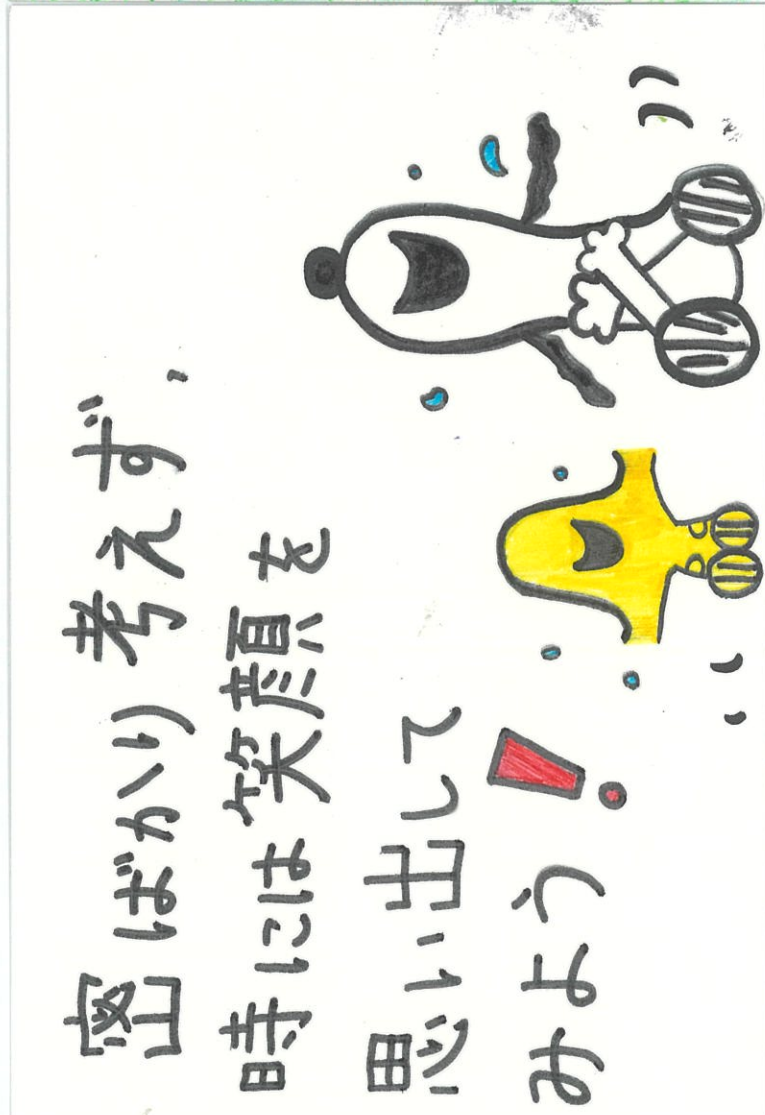 密ばかり考えず、
時には笑顔を
思い出して
みよう!